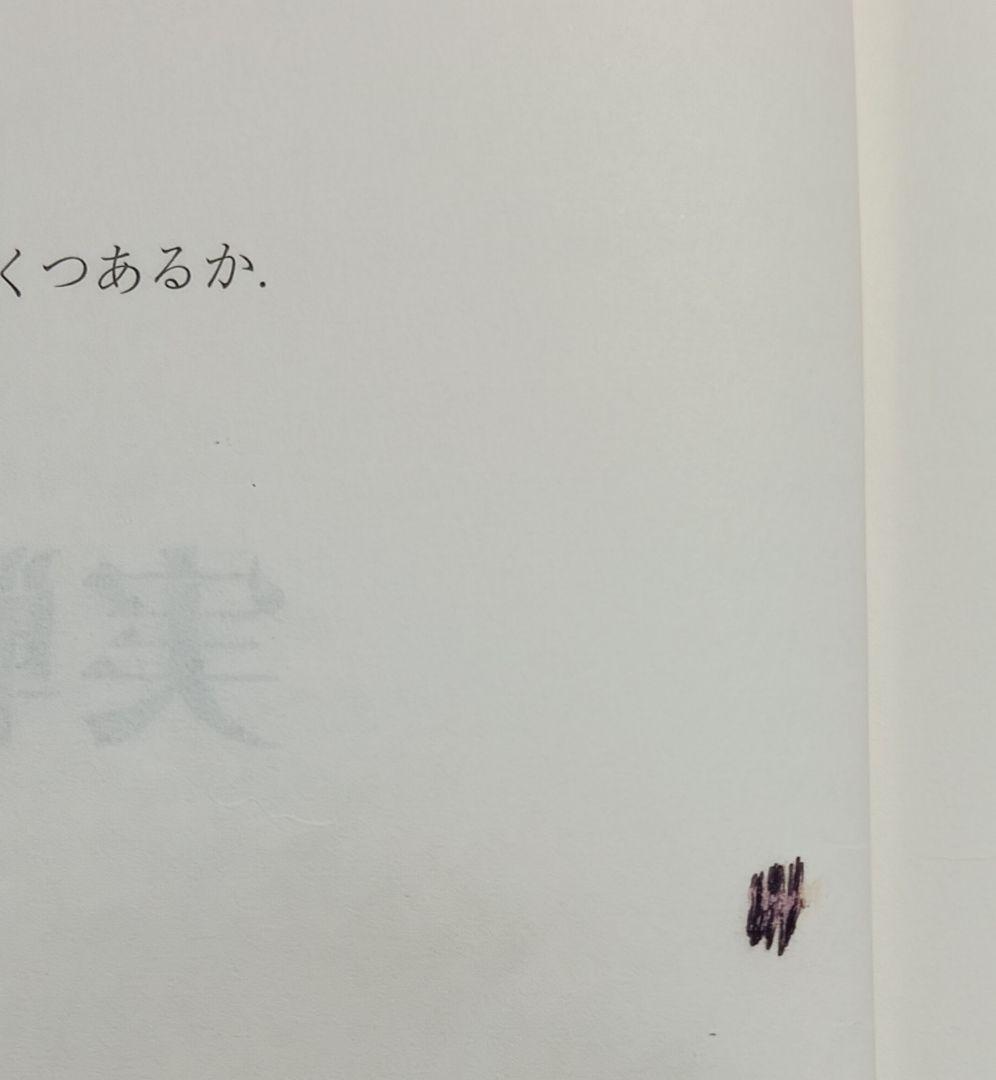 くつあるか.
実